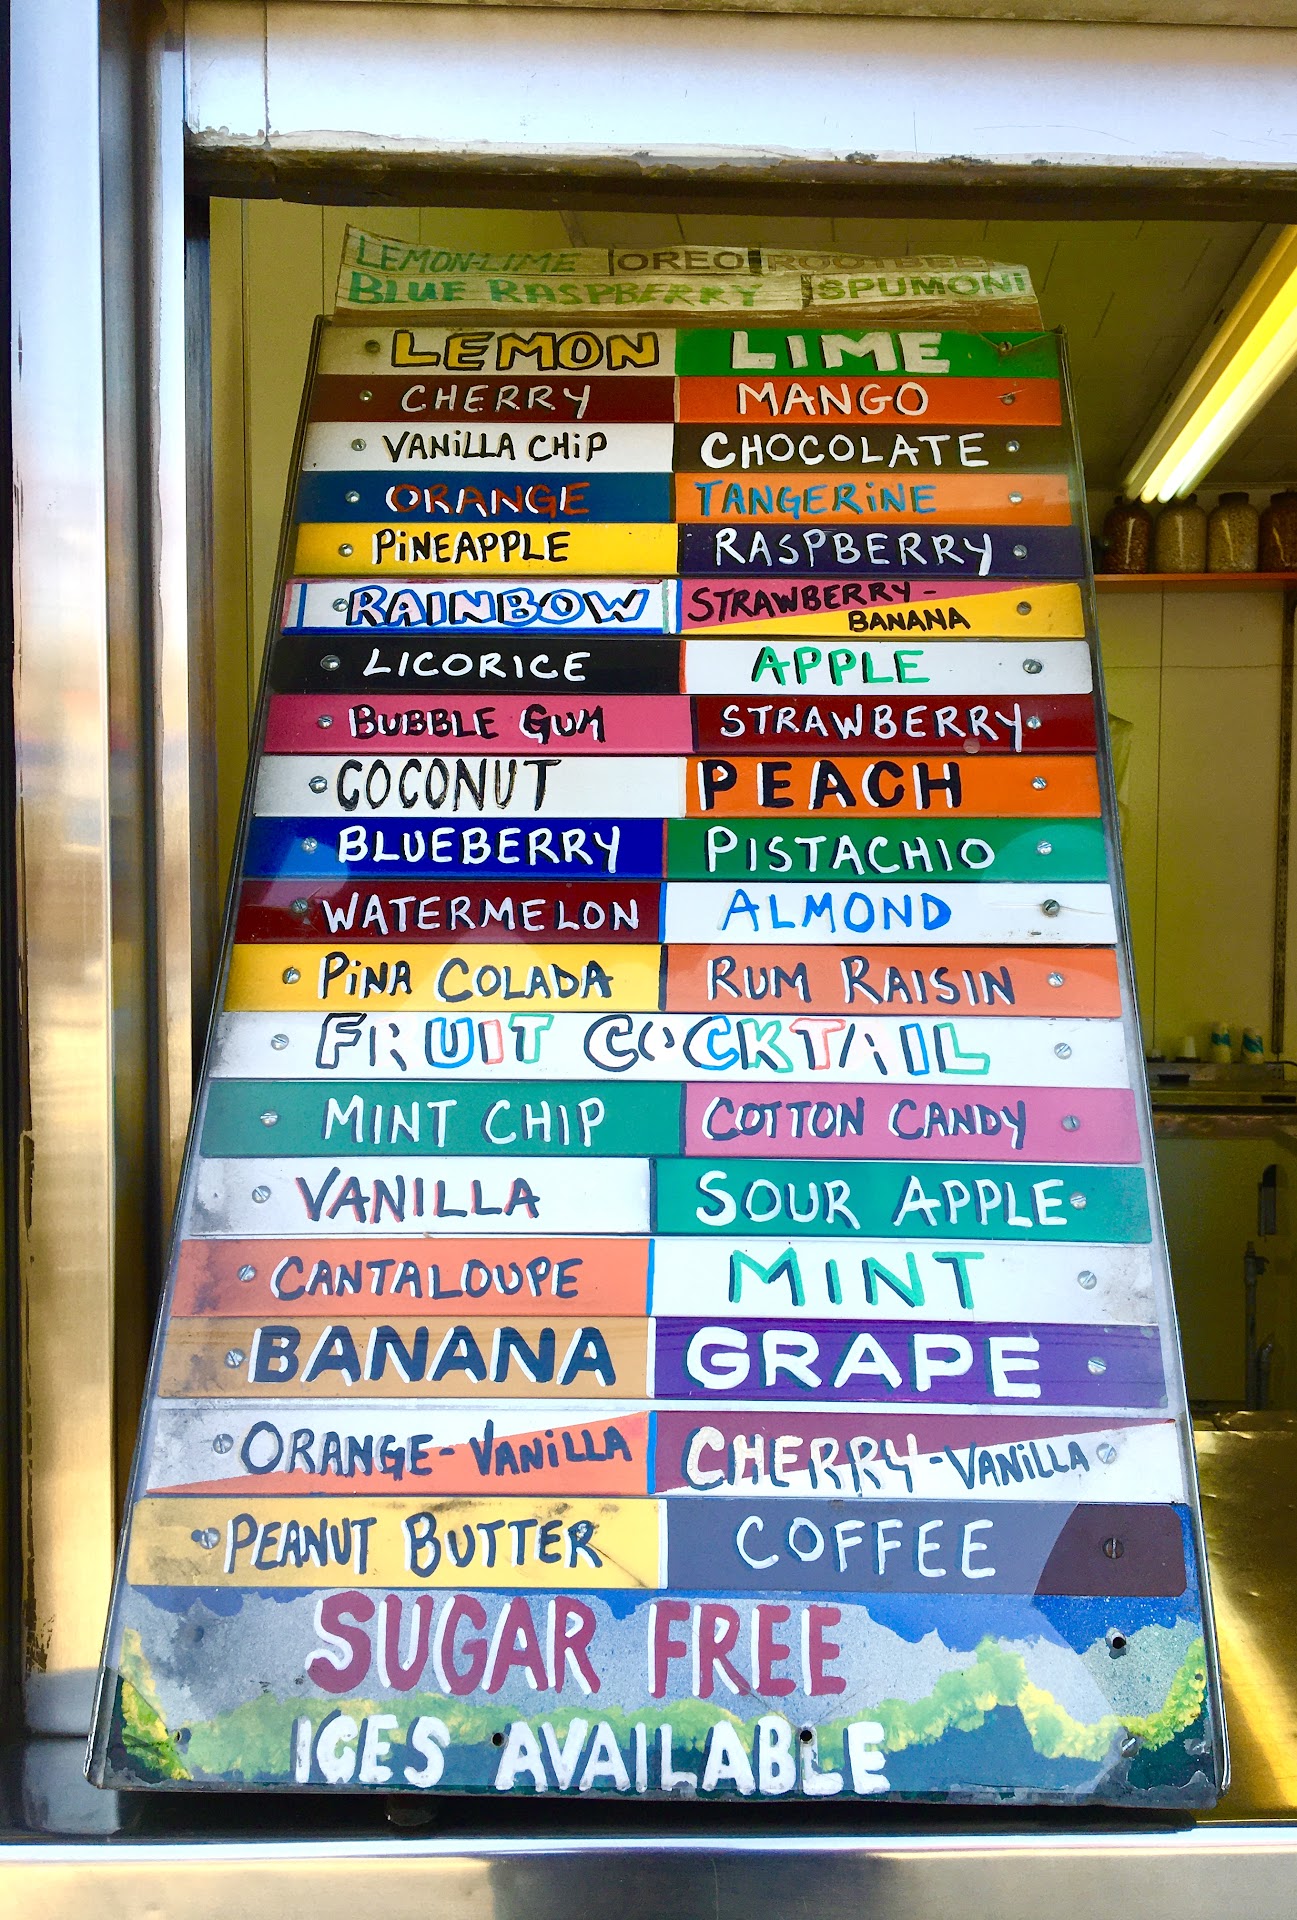 LEMON-LIME OREO ROOTBEER
BLUE RASPBERRY SPUMONI
LEMON LIME
CHERRY MANGO
VANILLA CHIP CHOCOLATE
ORANGE TANGERINE
PINEAPPLE RASPBERRY
RAINBOW STRAWBERRY-
BANANA
LICORICE APPLE
BUBBLE GUM STRAWBERRY
COCONUT PEACH
BLUEBERRY PISTACHIO
WATERMELON ALMOND
PINA COLADA RUM RAISIN
FRUIT COCKTAIL
MINT CHIP COTTON CANDY
VANILLA SOUR APPLE
CANTALOUPE MINT
BANANA GRAPE
ORANGE-VANILLA CHERRY-VANILLA
PEANUT BUTTER COFFEE
SUGAR FREE
ICES AVAILABLE